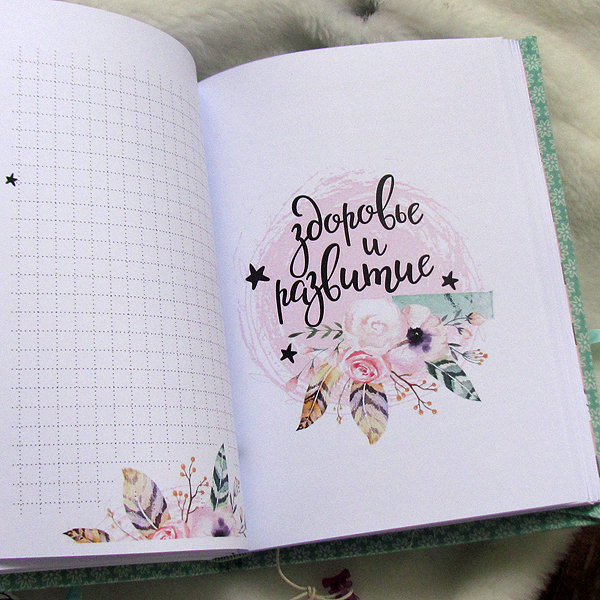 здоровье
и
развитие